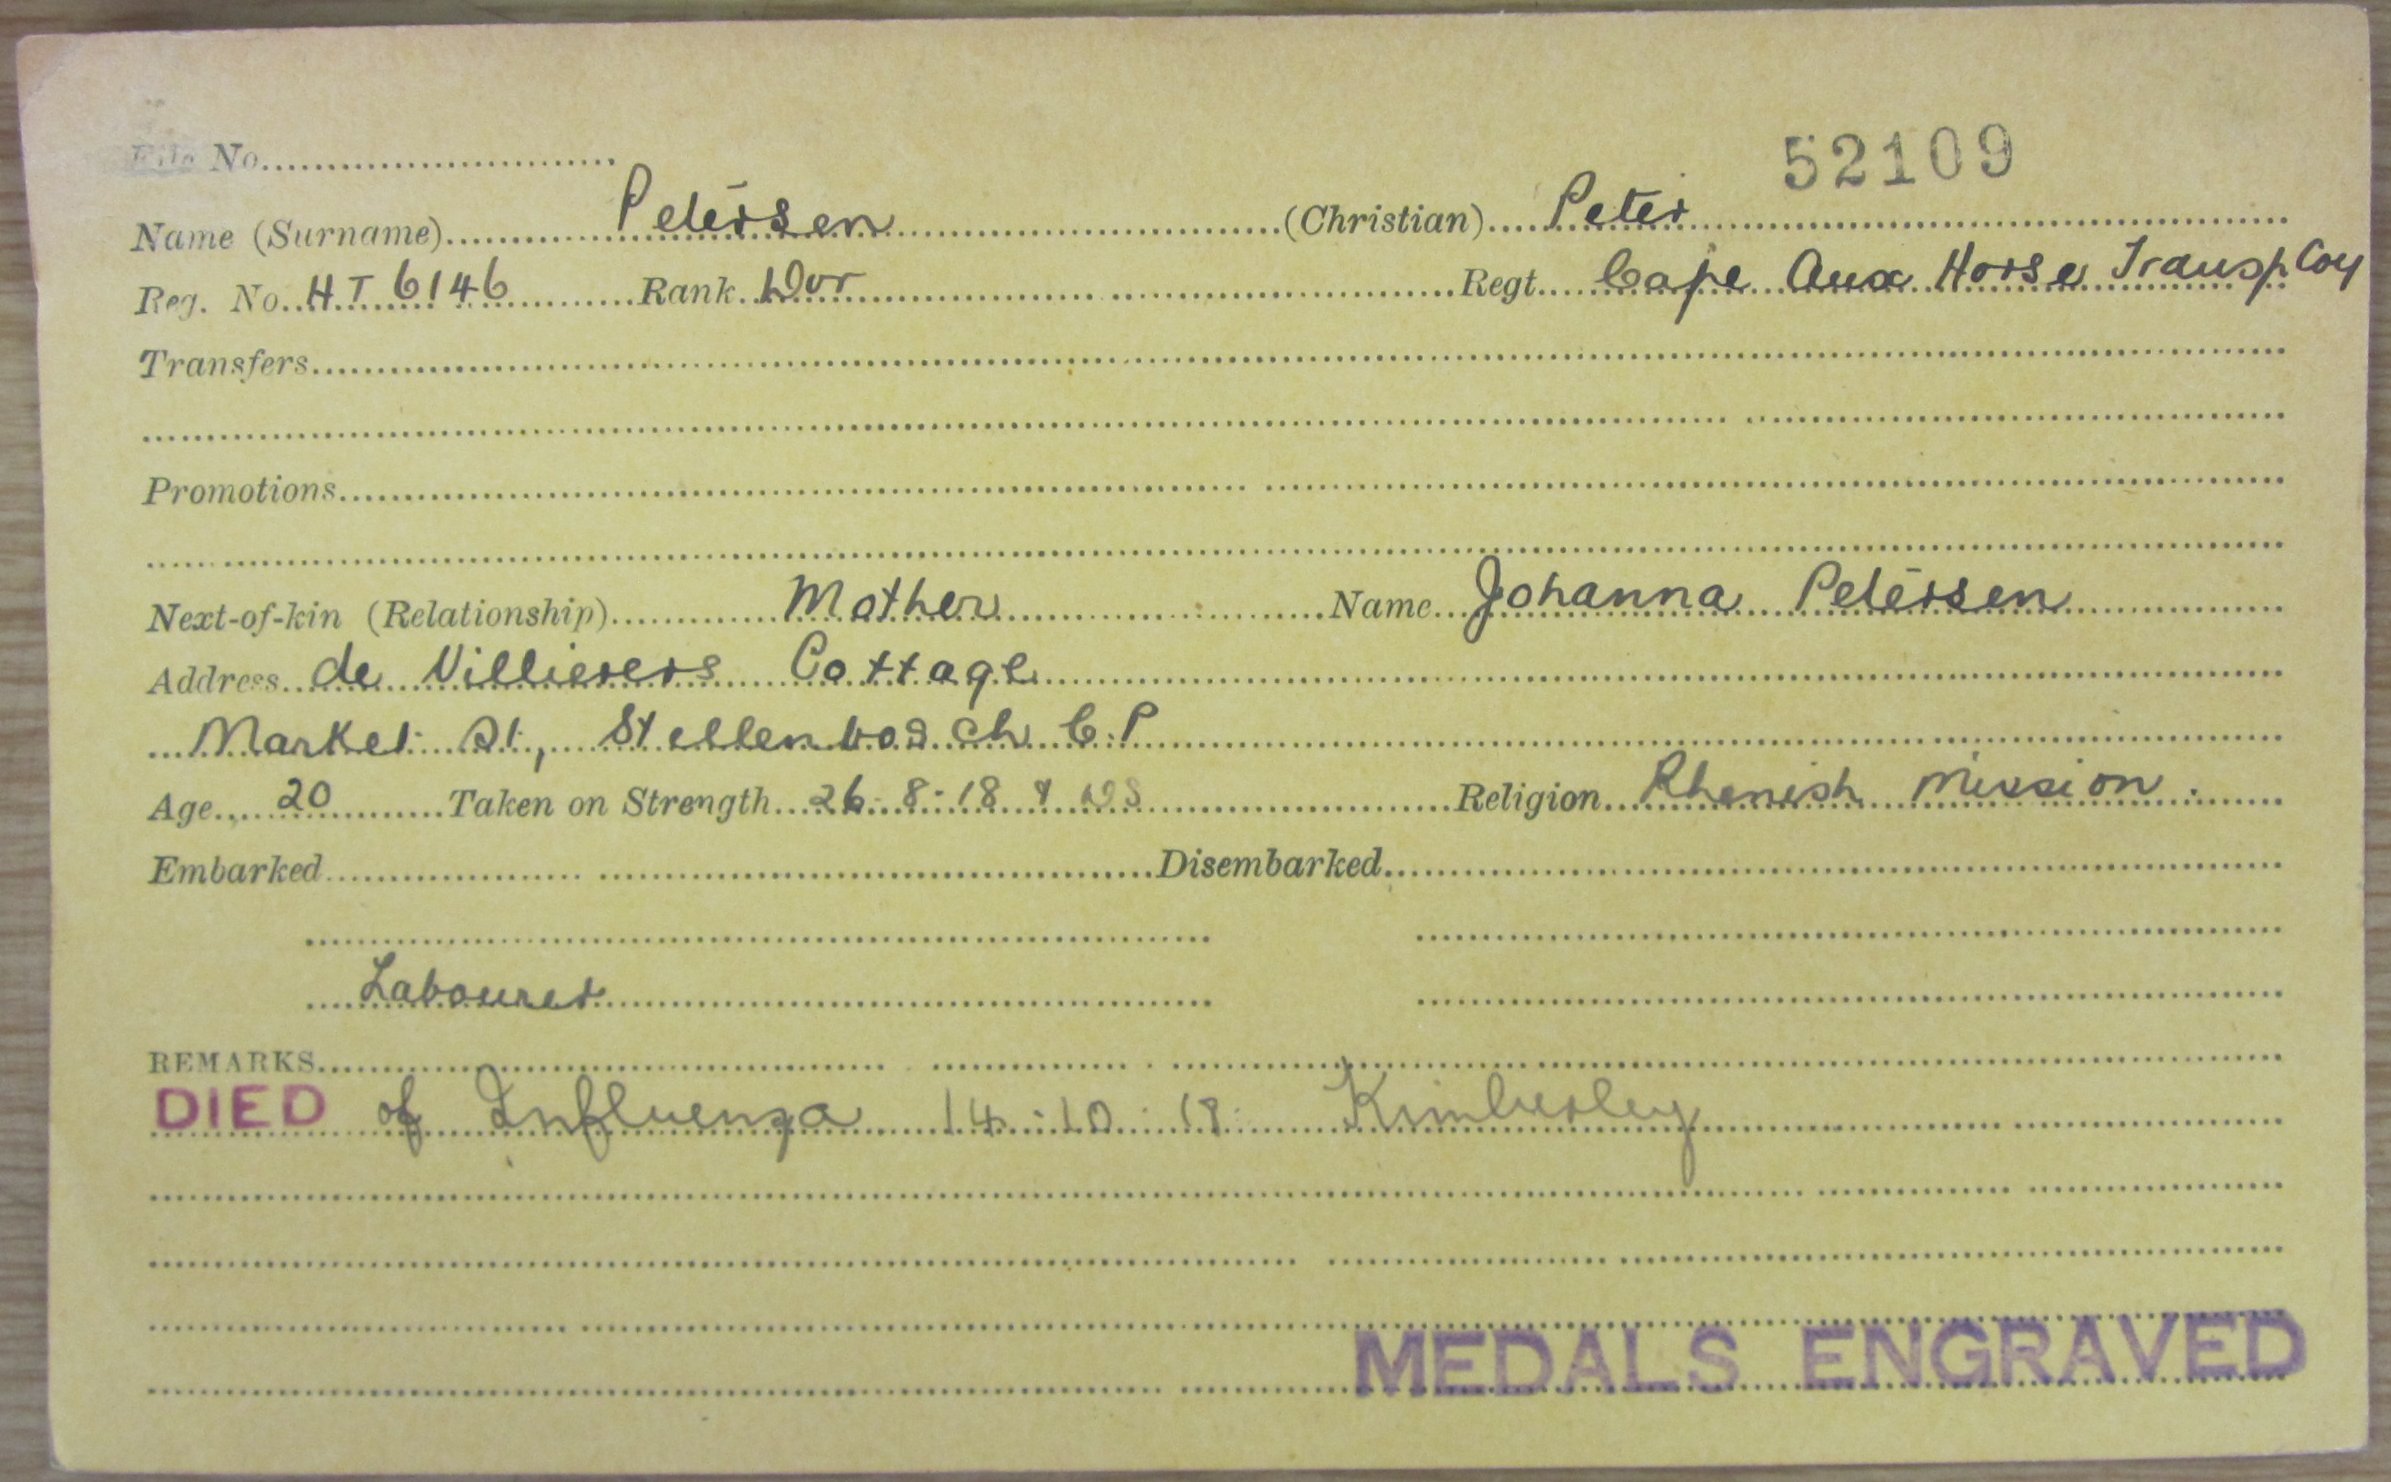 52109
File No.
Name (Surname) Petersen (Christian) Peter
Reg. No. HT 6146 Rank Dvr Regt. Cape Aux Horse Transp Coy
Transfers
Promotions
Next-of-kin (Relationship) Mother Name Johanna Petersen
Address de Villierers Cottage
Market St, Stellenbosch C.P
Age 20 Taken on Strength 26-8-18 Religion Rhenish Mission.
Embarked Disembarked
Labourer
REMARKS
DIED of Influenza 14.10.18 Kimberley
MEDALS ENGRAVED